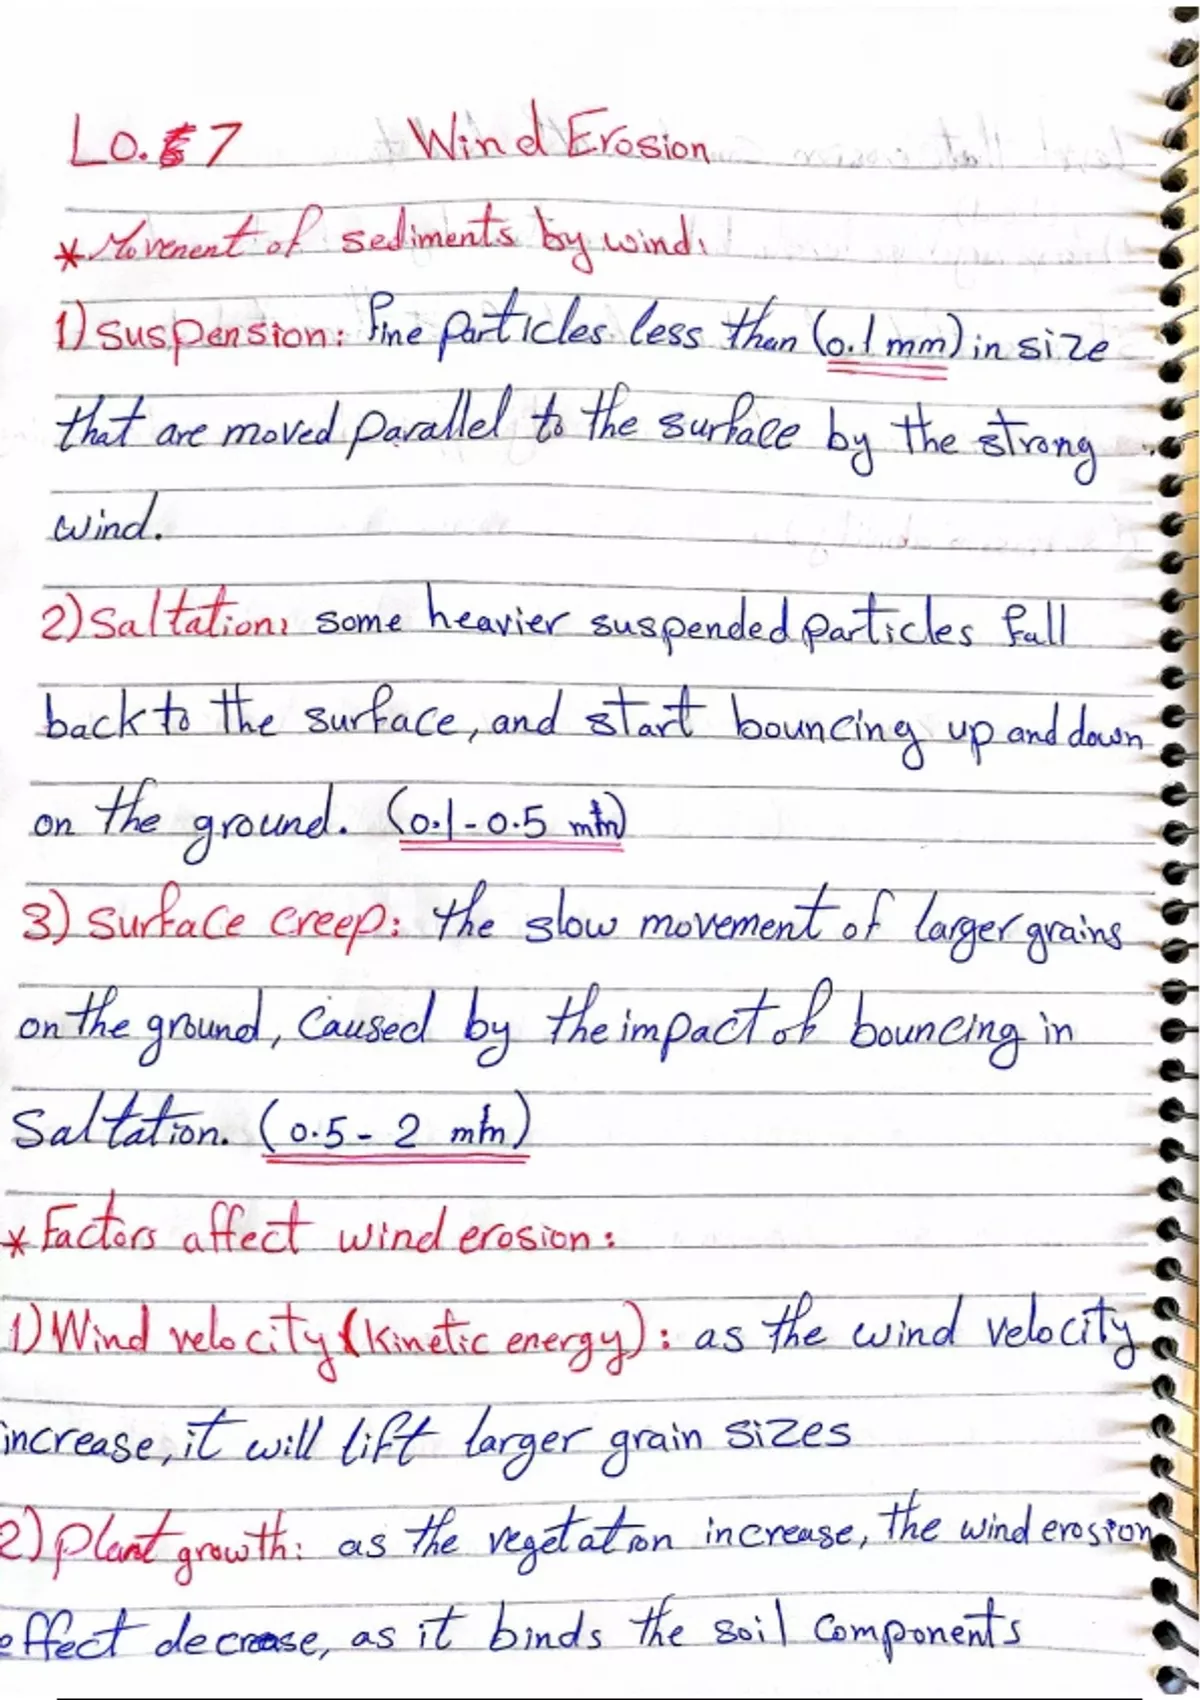 LO. 7 Wind Erosion
* Movenent of sediments by wind:
1) Suspension: fine particles less than (0.1 mm) in size
that are moved parallel to the surface by the strong
wind.
2) Saltation: some heavier suspended particles fall
back to the surface, and start bouncing up and down
on the ground. (0.1-0.5 mm)
3) Surface creep: the slow movement of larger grains
on the ground, caused by the impact of bouncing in
Saltation. (0.5- 2 mm)
* Factors affect wind erosion:
1) Wind velocity (Kinetic energy): as the wind velocity
increase, it will lift larger grain sizes
2) plant growth: as the vegetation increase, the wind erosion
effect decrease, as it binds the soil components